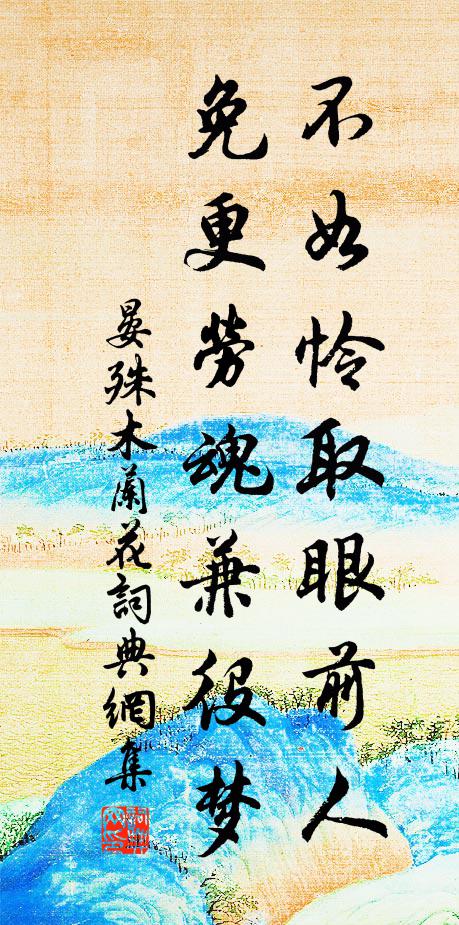 不如怜取眼前人
免更劳魂兼役梦
晏殊木蘭花詞典網集